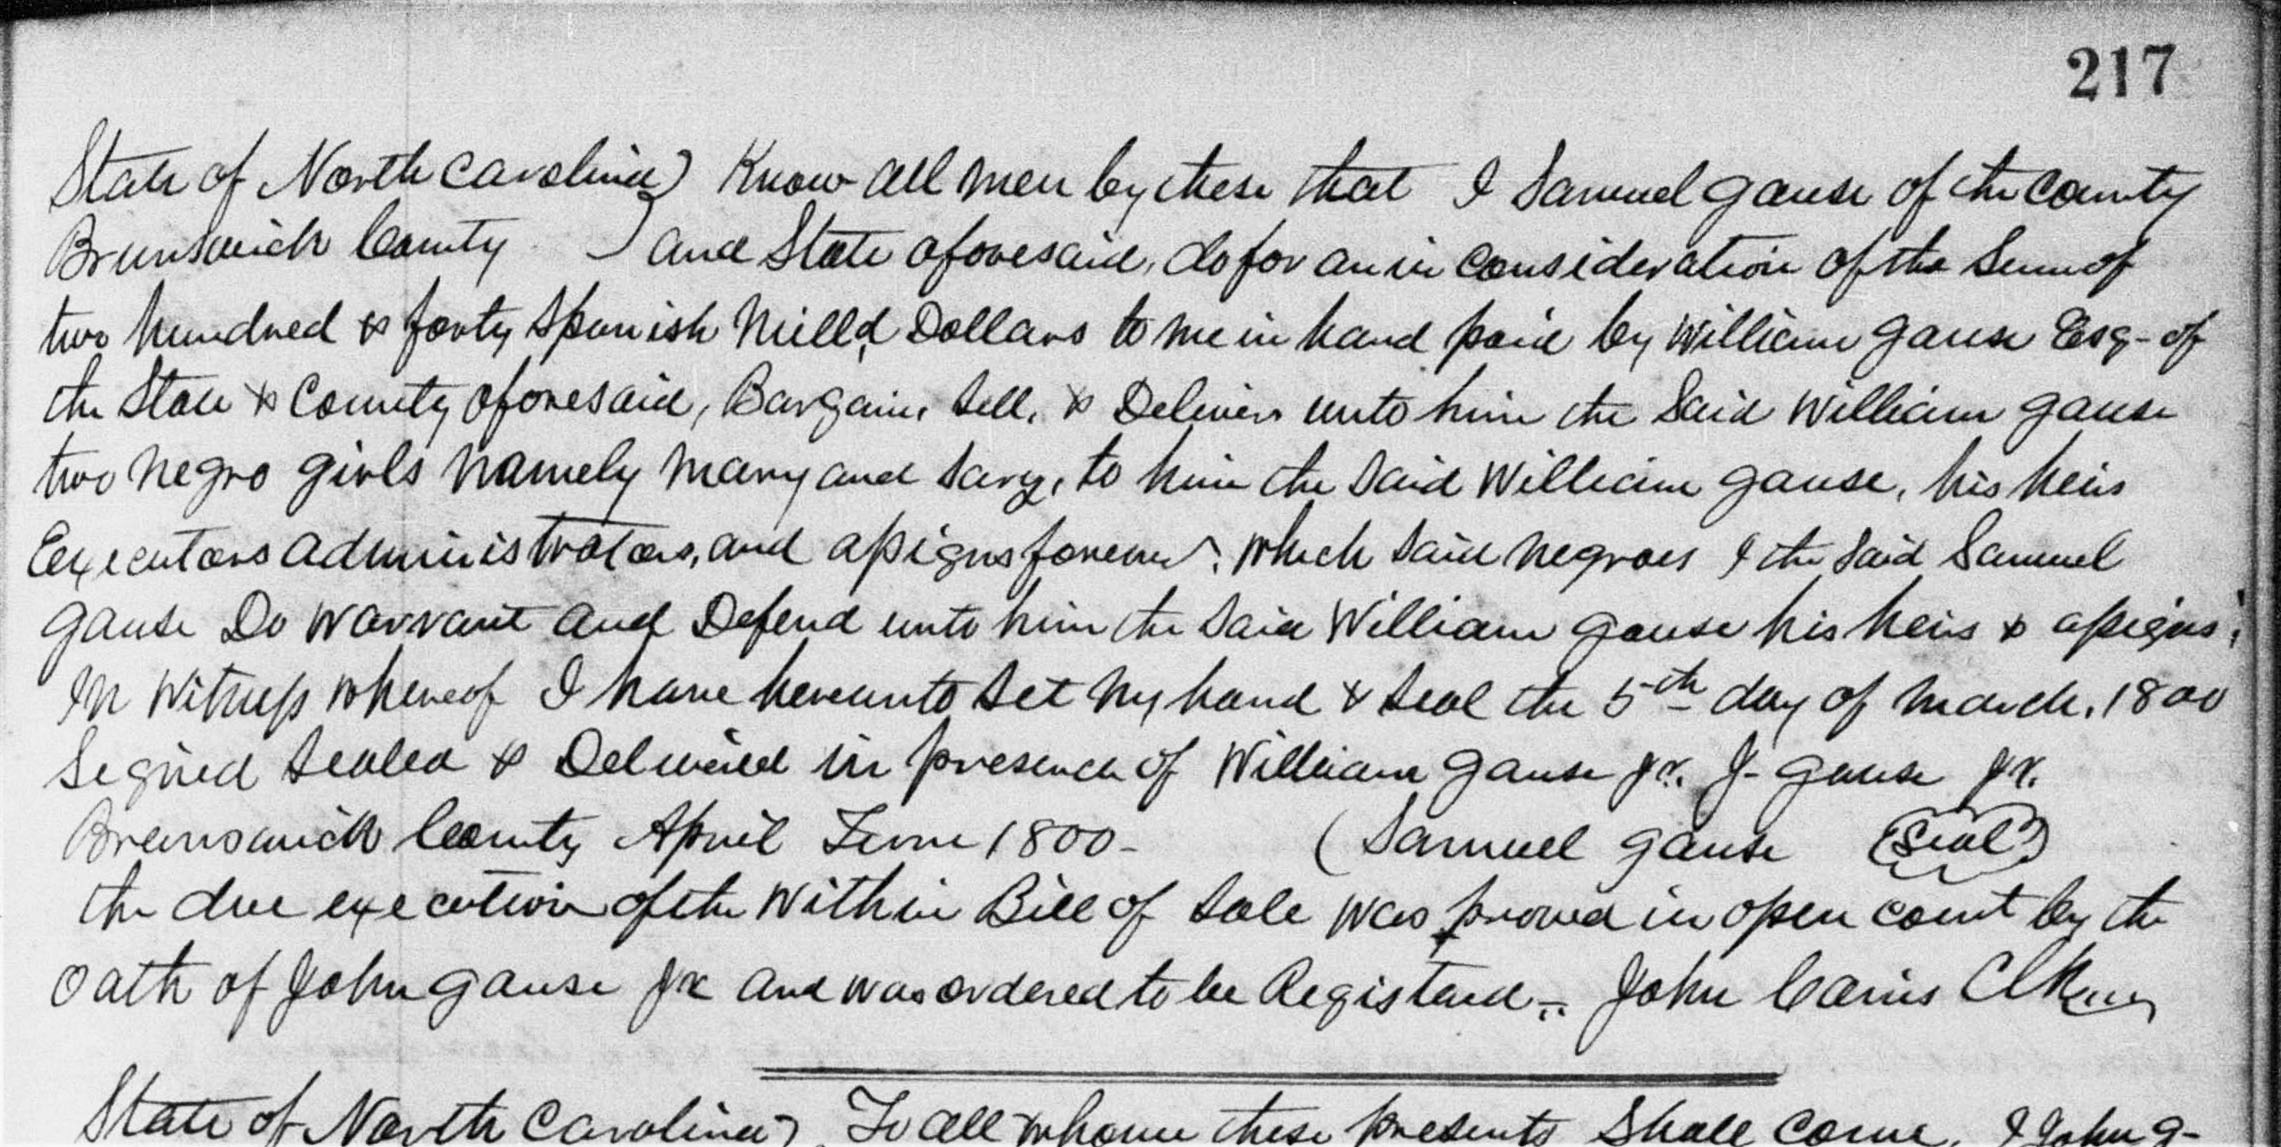 217
State of North Carolina) Know all men by these that I Samuel Gause of the County
Brunswick County ) and State aforesaid, do for an in consideration of the Sum of
two hundred & forty Spanish Milld Dollars to me in hand paid by William Gause Esq- of
the State & County aforesaid, Bargain, Sell, & Deliver unto him the Said William Gause
two negro girls namely Mary and Sary, to him the Said William Gause, his heirs
Executors administrators, and assigns forever, which Said negroes I the Said Samuel
Gause Do Warrant and Defend unto him the Said William Gause his heirs & assigns;
In Witness whereof I have hereunto Set my hand & Seal the 5th day of March, 1800
Signed Sealed & Delivered in presence of William Gause Jr. J- Gause Jr.
Brunswick County April Term 1800- (Samuel Gause (Seal)
the due execution of the Within Bill of Sale was proved in open court by the
Oath of John Gause Jr and was ordered to be Registerd -. John Cains Clk
State of North Carolina) To all whom these presents Shall come, I John G-